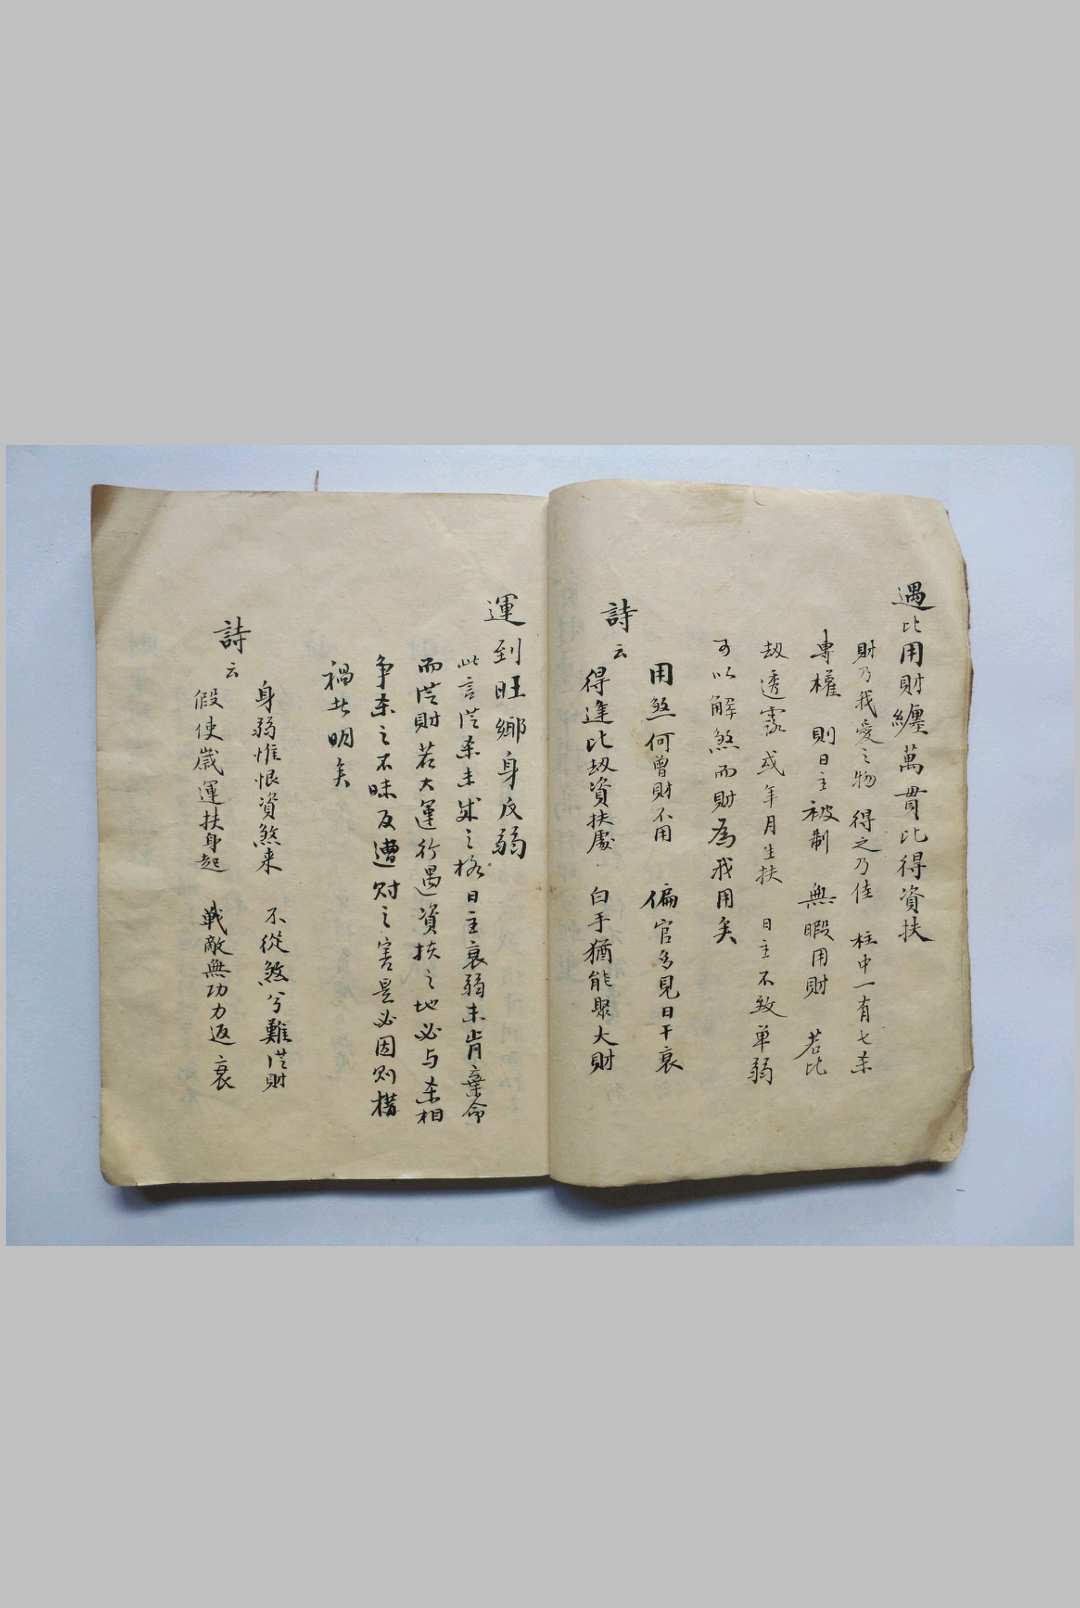 遇比用財纏萬貫比得資扶
財乃我愛之物 得之乃佳 柱中一有七杀
專權 則日主被制 無暇用財 若比
刼透露或年月生扶 日主不致单弱
可以解煞而財為我用矣
詩云
用煞何曾財不用 偏官多見日干衰
得逢比刼資扶處 白手猶能聚大財
運到旺鄉身反弱
此言從杀未成之格日主衰弱未肯棄命
而從財若大運行遇資扶之地必与杀相
争杀之不昧反遭财之害是必因财
禍皆明矣
詩云
身弱惟恨資煞来 不從煞兮難從財
假使歲運扶身起 戰敵無功力返衰